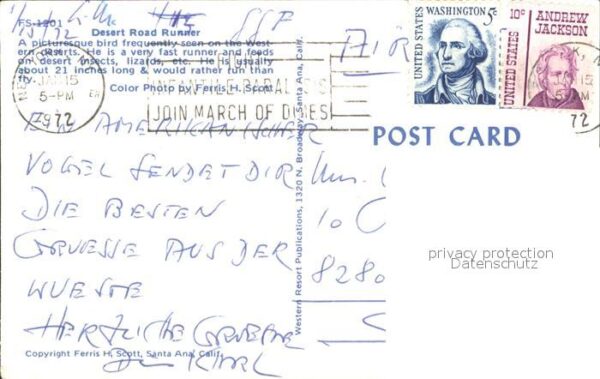 FS-1201
1/15/72
Desert Road Runner
A picturesque bird frequently seen on the West-
ern deserts. He is a very fast runner and feeds
on desert insects, lizards, etc. He is usually
about 21 inches long & would rather run than
fly.
Color Photo by Ferris H. Scott
JAN 15
5-PM
1972
JOIN MARCH OF DIMES
AIR
UNITED STATES
WASHINGTON 5c
10c ANDREW
JACKSON
UNITED STATES
72
POST CARD
EIN AMERIKANISCHER
VOGEL SENDET DIR
DIE BESTEN
GRUESSE AUS DER
WUESTE
HERZLICHE GRUESSE
DEIN KARL
10
8280
Western Resort Publications, 1320 N. Broadway, Santa Ana, Calif.
privacy protection
Datenschutz
Copyright Ferris H. Scott, Santa Ana, Calif.